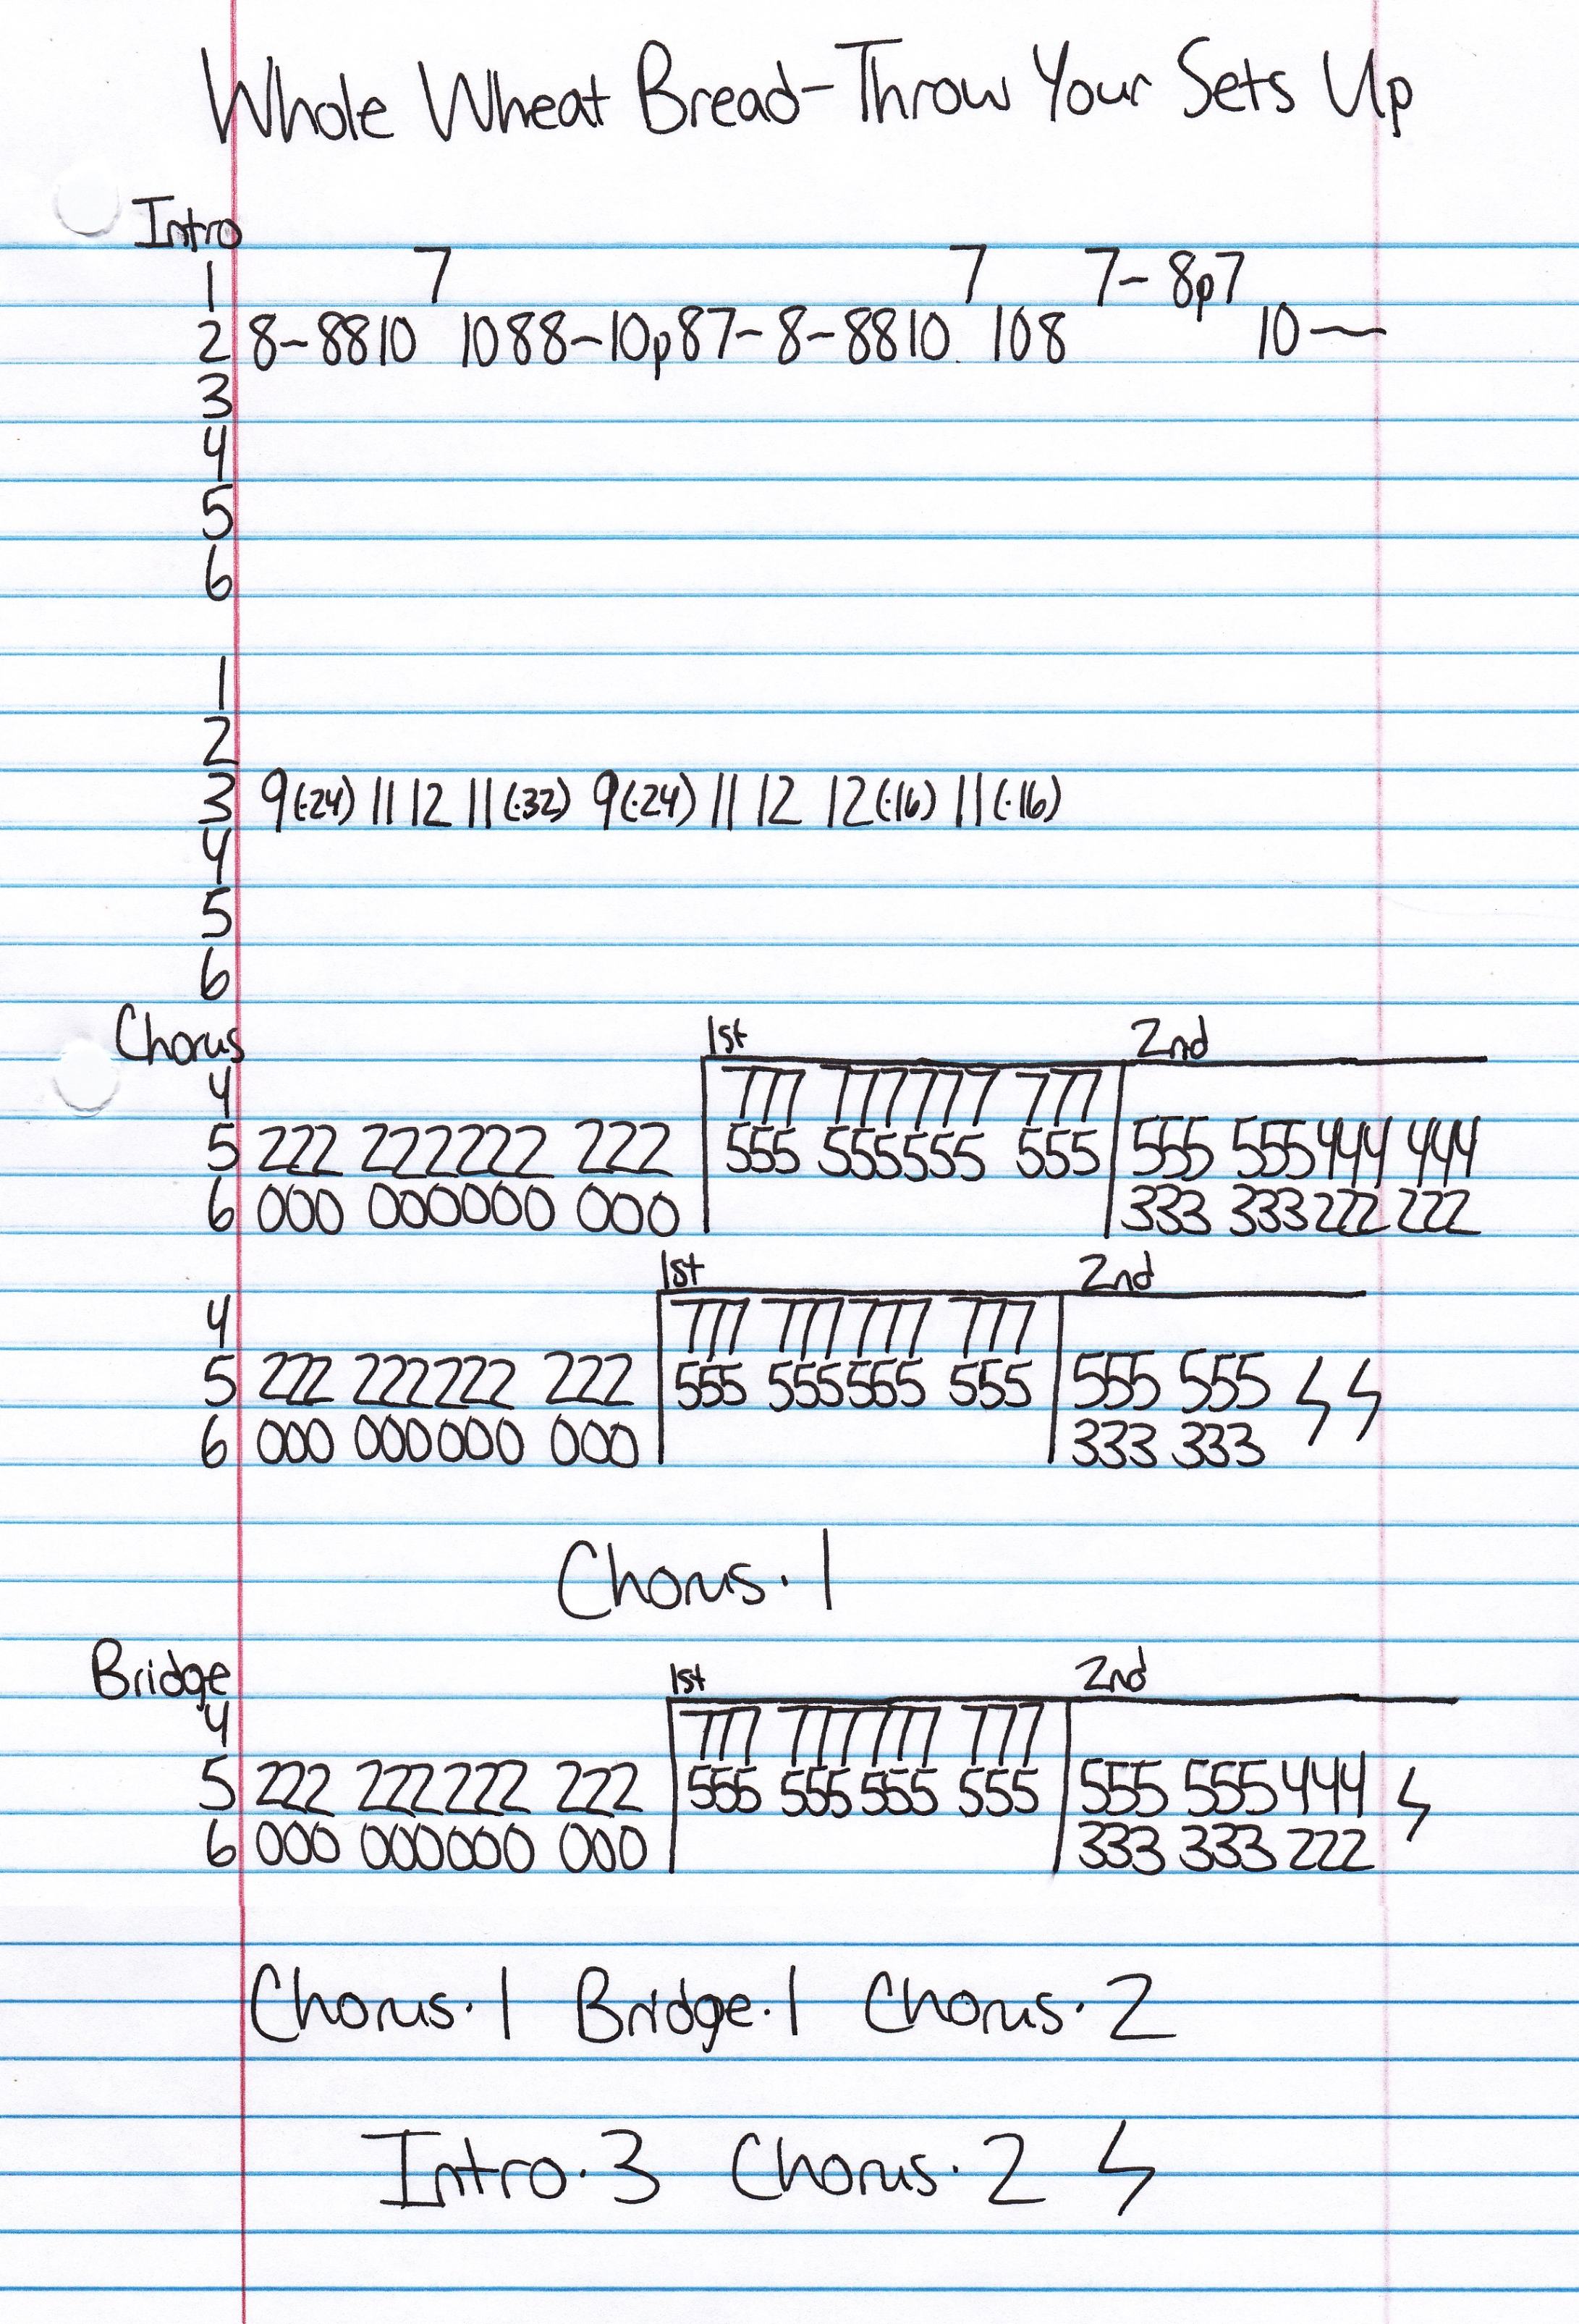 Whole Wheat Bread-Throw Your Sets Up
Intro
1 7 7 7- 8p7
2 8-8810 1088-10p87-8-8810 108 10-
3
4
5
6
1
2
3 9(·24) 11 12 11(·32) 9(·24) 11 12 12(·16) 11(·16)
4
5
6
Chorus 1st 2nd
4 777 777777 777
5 222 222222 222 555 555555 555 555 555444 444
6 000 000000 000 333 333222 222
1st 2nd
4 777 777777 777
5 222 222222 222 555 555555 555 555 555
6 000 000000 000 333 333
Chorus·1
Bridge 1st 2nd
4 777 777777 777
5 222 222222 222 555 555555 555 555 555444
6 000 000000 000 333 333222
Chorus·1 Bridge·1 Chorus·2
Intro·3 Chorus·2